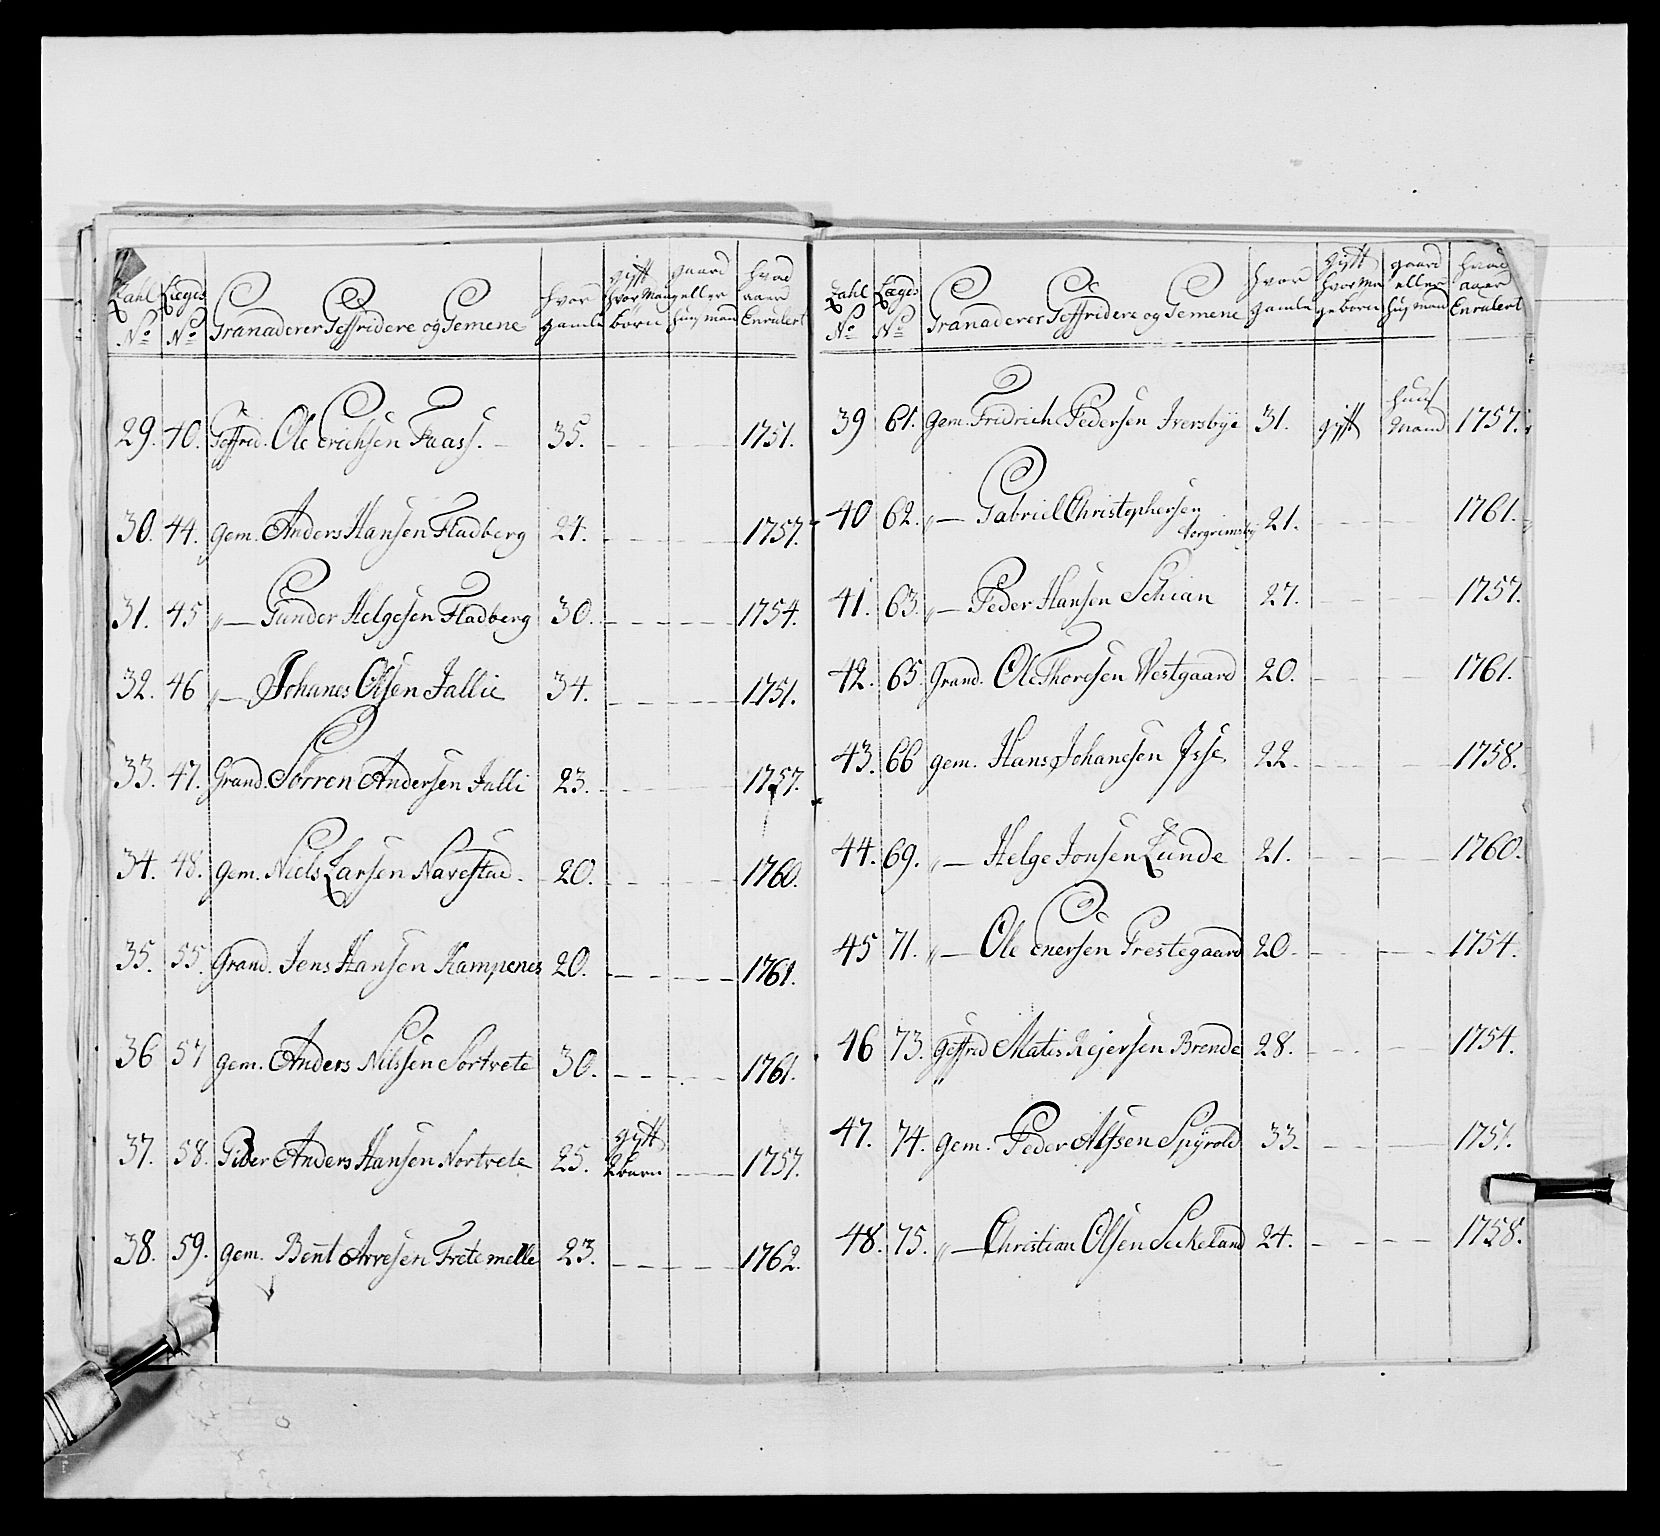 Zahl Læges Granaderer Geffridere og Gemene hvor gamle gift hvor Mange børn gaard eller huusmand hvad aaer Enrulert
No No
29. 40. Geffrid. Ole Erichsen Faass. 35. 1751.
30. 44. gem. Anders Hansen Fladberg 21. 1757.
31. 45 „— Gunder Helgesen Fladberg 30. 1754.
32. 46 „— Johanes Olsen Jallie 34. 1751.
33. 47. Grand. Sørren Andersen Jalli 23. 1757.
34. 48. gem. Niels Larsen Navestad 20. 1760.
35. 55. Grand. Jens Hansen Kampenes 20. 1761.
36 57 gem. Anders Nilssen Sortvete 30. 1761.
37. 58. Anders Hansen Nortvete 25. gift 2 barn 1757.
38. 59. gem. Bent Arvesen Tvetemelle 23. 1762.
Zahl Læges Granaderer Geffridere og Gemene hvor gamle gift hvor Ma geborn gaard eller huusmand hvad aaer Enrulert
No No
39 61. gem. Fridrich Pedersen Iversbye 31. gift huus Mand 1757.
40 62. „— Gabriel Christophersen Torgrimsby 21. 1761.
41. 63. „— Peder Hansen Schian 27. 1757.
42. 65. Grand. Ole Thoresen Westgaard 20. 1761.
43. 66 gem. Hans Johanesen Isse 22. 1758.
44. 69. „— Helge Jonsen Lunde 21. 1760.
45 71. „— Ole Enersen Prestegaard 20. 1754.
46 73. Geffrid Matis Rejersen Brende 28. 1754.
47. 74. gem. Peder Alfsen Spÿrold 33. 1751.
48. 75. „— Christian Olsen Seckeland 24. 1758.